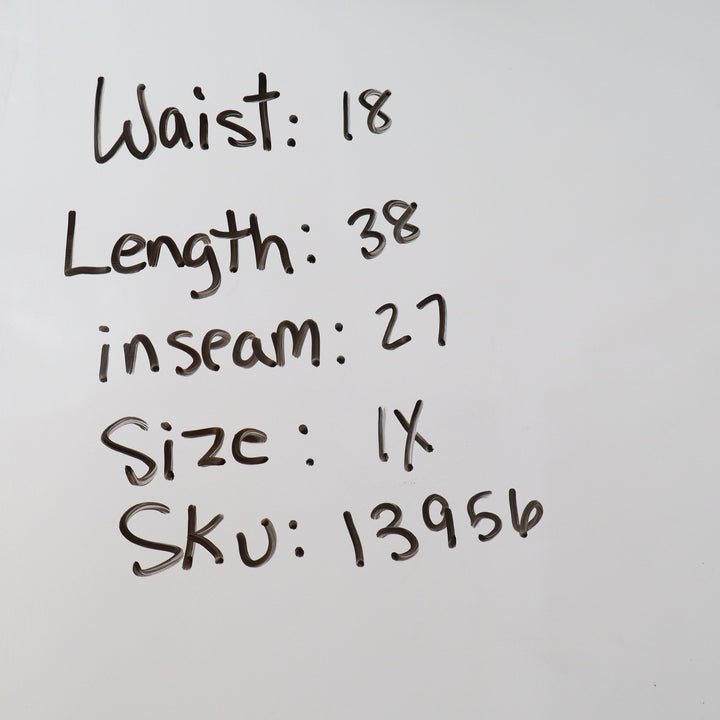 Waist: 18
Length: 38
inseam: 27
Size: 1X
Sku: 13956